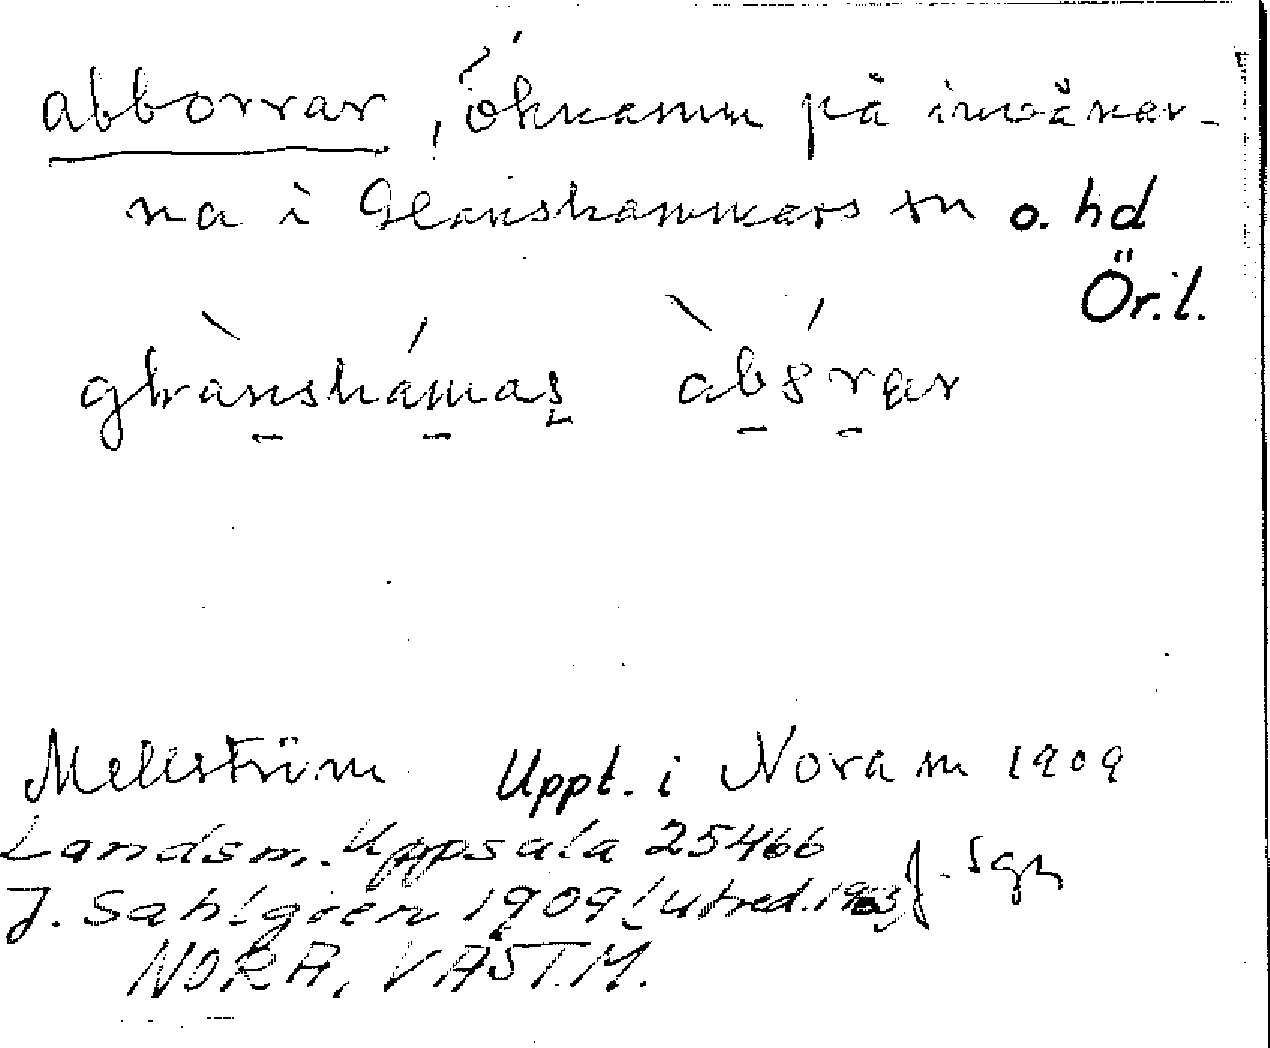 abborrar, öknamn på invånar-
na i Glanshammars sn o. hd
Ör.l.
glànshámaş àbȣ́rar
Mellström Uppt. i Nora sn 1909
Landsm. Uppsala 25466
J. Sahlgren 1909 (utred. 1963) J. Sgn
NORA, VÄSTM.